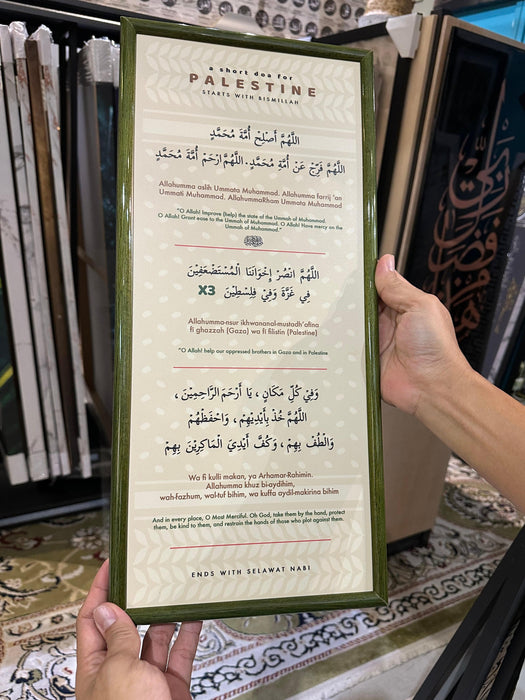 a short doa for
PALESTINE
STARTS WITH BISMILLAH
اللَّهُمَّ أَصْلِحْ أُمَّةَ مُحَمَّدٍ
اللَّهُمَّ فَرِّجْ عَنْ أُمَّةِ مُحَمَّدٍ. اللَّهُمَّ ارْحَمْ أُمَّةَ مُحَمَّدٍ
Allahumma aslih Ummata Muhammad. Allahumma farrij 'an
Ummati Muhammad. AllahummaRham Ummata Muhammad
"O Allah! Improve (help) the state of the Ummah of Muhammad.
O Allah! Grant ease to the Ummah of Muhammad. O Allah! Have mercy on the
Ummah of Muhammad."
اللَّهُمَّ انْصُرْ إِخْوَانَنَا الْمُسْتَضْعَفِيْنَ
فِي غَزَّةَ وَفِي فِلِسْطِيْنَ X3
Allahumma-nsur ikhwananal-mustadh'afina
fi ghazzah (Gaza) wa fi filistin (Palestine)
"O Allah! help our oppressed brothers in Gaza and in Palestine
وَفِي كُلِّ مَكَانٍ ، يَا أَرْحَمَ الرَّاحِمِيْنَ ،
اللَّهُمَّ خُذْ بِأَيْدِيْهِمْ ، وَاحْفَظْهُمْ
وَالْطُفْ بِهِمْ ، وَكُفَّ أَيْدِيَ الْمَاكِرِيْنَ بِهِمْ
Wa fi kulli makan, ya Arhamar-Rahimin.
Allahumma khuz bi-aydihim,
wah-fazhum, wal-tuf bihim, wa kuffa aydil-makirina bihim
And in every place, O Most Merciful. Oh God, take them by the hand, protect
them, be kind to them, and restrain the hands of those who plot against them.
ENDS WITH SELAWAT NABI